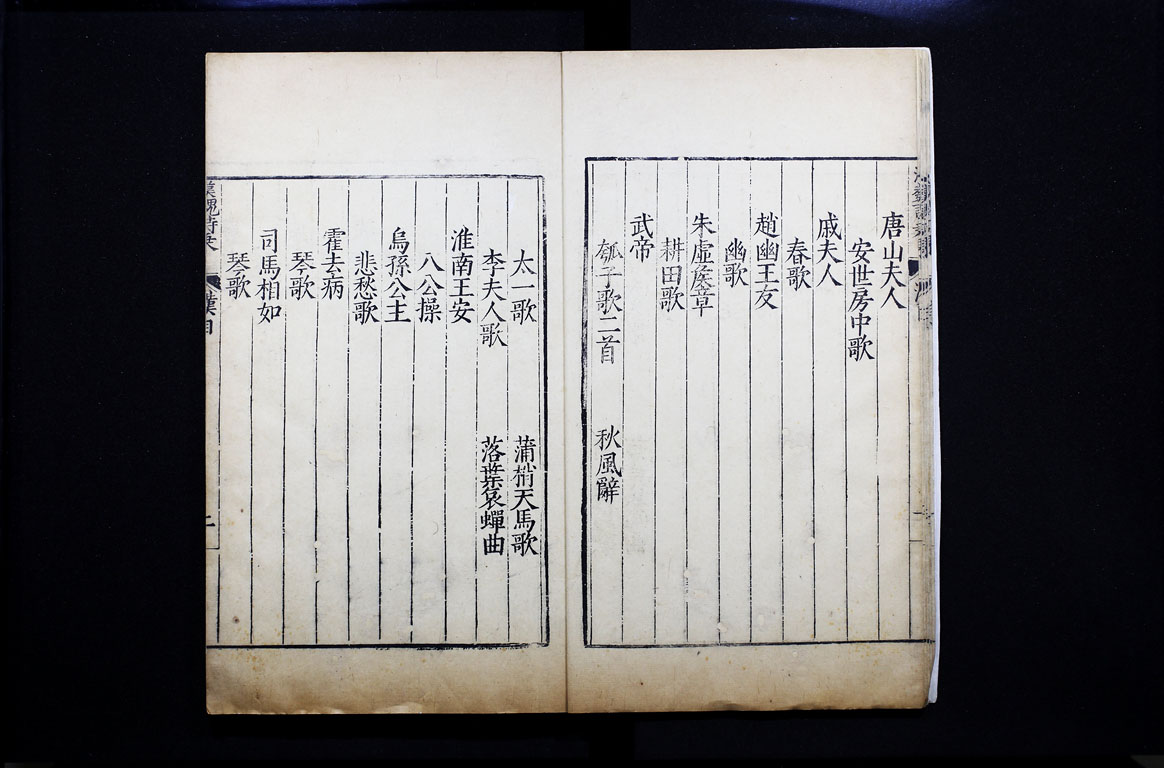 唐山夫人
安世房中歌
戚夫人
春歌
趙幽王友
幽歌
朱虛矦章
耕田歌
武帝
瓠子歌二首 秋風辭
太一歌 蒲梢天馬歌
李夫人歌 落葉哀蟬曲
淮南王安
八公操
烏孫公主
悲愁歌
霍去病
琴歌
司馬相如
琴歌
漢魏詩乘 漢目 二